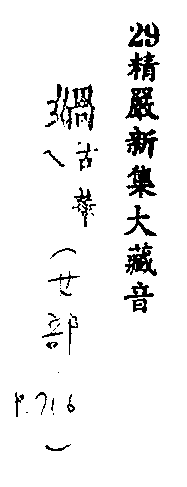 29精嚴新集大藏音
古華(部 P.716)